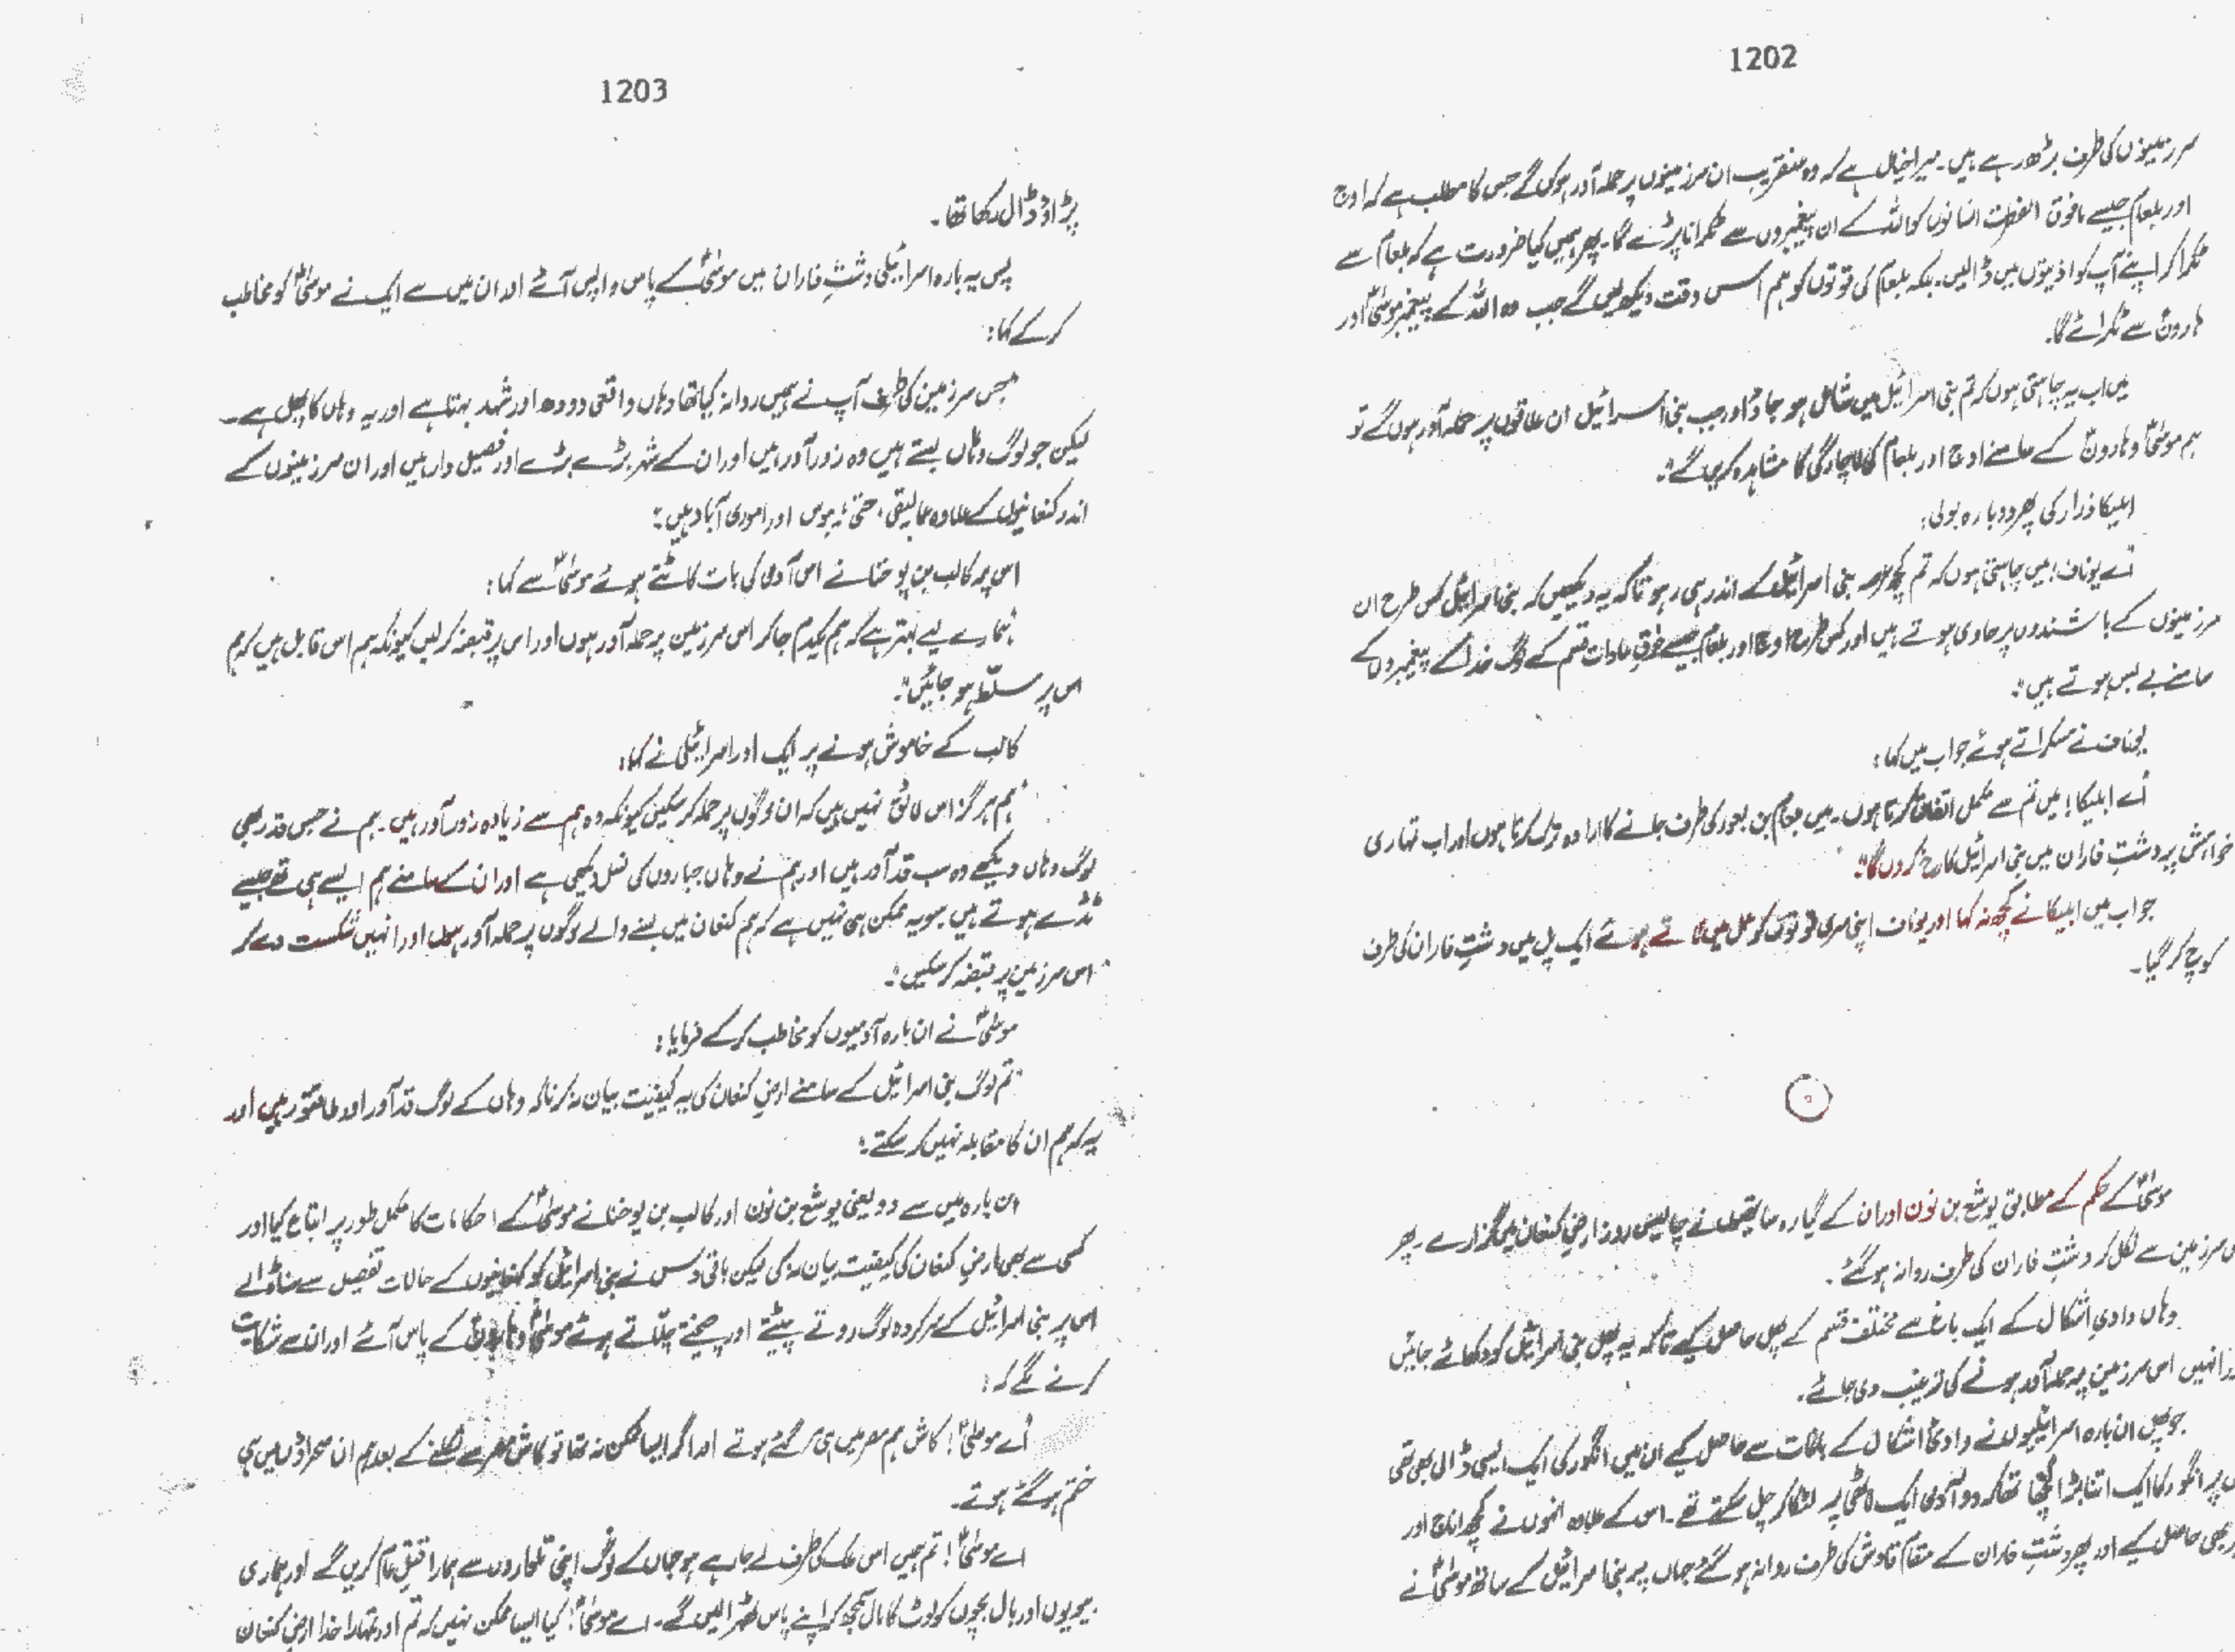 1202
سرزمینوں کی طرف بڑھ رہے ہیں۔ میرا خیال ہے کہ وہ عنقریب ان سرزمینوں پر حملہ آور ہوں گے جس کا مطلب ہے کہ اوج
اور بلعام جیسے مافوق الفطرت انسانوں کو اللہ کے ان پیغمبروں سے ٹکرانا پڑے گا۔ پھر ہمیں کیا ضرورت ہے کہ بلعام سے
ٹکرا کر اپنے آپ کو اذیتوں میں ڈالیں۔ بلکہ بلعام کی قوتوں کو ہم اس وقت دیکھ لیں گے جب وہ اللہ کے پیغمبر موسیٰؑ اور
ہارونؑ سے ٹکرائے گا۔
میں اب یہ چاہتی ہوں کہ تم بنی اسرائیل میں شامل ہو جاؤ اور جب بنی اسرائیل ان علاقوں پر حملہ آور ہوں گے تو
ہم موسیٰؑ و ہارونؑ کے سامنے اوج اور بلعام کی لاچارگی کا مشاہدہ کریں گے"۔
ابلیکا ذرا رکی پھر دوبارہ بولی:
"اے یوناف! میں چاہتی ہوں کہ تم کچھ عرصہ بنی اسرائیل کے اندر ہی رہو تاکہ یہ دیکھیں کہ بنی اسرائیل کس طرح ان
سرزمینوں کے باشندوں پر حاوی ہوتے ہیں اور کس طرح اوج اور بلعام جیسے خرقِ عادات قسم کے لوگ خدا کے پیغمبروں کے
سامنے بے بس ہوتے ہیں"۔
یوناف نے مسکراتے ہوئے جواب میں کہا:
"اے ابلیکا! میں تم سے مکمل اتفاق کرتا ہوں۔ میں بلعام بن بعور کی طرف جانے کا ارادہ ترک کرتا ہوں اور اب تمہاری
خواہش پر دشتِ فاران میں بنی اسرائیل کا رخ کروں گا"۔
جواب میں ابلیکا نے کچھ نہ کہا اور یوناف اپنی سری قوتوں کو عمل میں لاتے ہوئے ایک پل میں دشتِ فاران کی طرف
کوچ کر گیا۔
موسیٰؑ کے حکم کے مطابق یوشع بن نون اور ان کے گیارہ ساتھیوں نے چالیس روز ارضِ کنعان میں گزارے۔ پھر
سرزمین سے نکل کر دشتِ فاران کی طرف روانہ ہو گئے۔
وہاں وادیِ اشکال کے ایک باغ سے مختلف قسم کے پھل حاصل کیے تاکہ یہ پھل بنی اسرائیل کو دکھائے جائیں
انہیں اس سرزمین پر حملہ آور ہونے کی ترغیب دی جائے۔
جو پھل ان بارہ اسرائیلیوں نے وادیٔ اشکال کے باغات سے حاصل کیے ان میں انگور کی ایک ایسی ڈالی بھی تھی
پر انگور کا ایک اتنا بڑا گچھا تھا کہ دو آدمی ایک لاٹھی پر لٹکا کر چل سکتے تھے۔ اس کے علاوہ انہوں نے کچھ اناج اور
بھی حاصل کیے اور پھر دشتِ فاران کے مقام قادش کی طرف روانہ ہو گئے جہاں پر بنی اسرائیل کے ساتھ موسیٰؑ نے
1203
پڑاؤ ڈال رکھا تھا۔
پس یہ بارہ اسرائیلی دشتِ فاران میں موسیٰؑ کے پاس واپس آئے اور ان میں سے ایک نے موسیٰؑ کو مخاطب
کر کے کہا:
"جس سرزمین کی طرف آپ نے ہمیں روانہ کیا تھا وہاں واقعی دودھ اور شہد بہتا ہے اور یہ وہاں کا پھل ہے۔
لیکن جو لوگ وہاں بستے ہیں وہ زور آور ہیں اور ان کے شہر بڑے بڑے اور فصیل دار ہیں اور ان سرزمینوں کے
اندر کنعانیوں کے علاوہ عمالیقی، حتی، یبوس اور اموری آباد ہیں"۔
اس پر کالب بن یوحنا نے اس آدمی کی بات کاٹتے ہوئے موسیٰؑ سے کہا:
"ہمارے لیے بہتر ہے کہ ہم یکدم جا کر اس سرزمین پر حملہ آور ہوں اور اس پر قبضہ کر لیں کیونکہ ہم اس قابل ہیں کہ ہم
اس پر مسلط ہو جائیں"۔
کالب کے خاموش ہونے پر ایک اور اسرائیلی نے کہا:
"ہم ہرگز اس لائق نہیں ہیں کہ ان لوگوں پر حملہ کر سکیں کیونکہ وہ ہم سے زیادہ زور آور ہیں۔ ہم نے جس قدر بھی
لوگ وہاں دیکھے وہ سب قد آور ہیں اور ہم نے وہاں جباروں کی نسل دیکھی ہے اور ان کے سامنے ہم ایسے ہی تھے جیسے
ٹڈے ہوتے ہیں سو یہ ممکن ہی نہیں ہے کہ ہم کنعان میں بسنے والے لوگوں پر حملہ آور ہوں اور انہیں شکست دے کر
اس سرزمین پر قبضہ کر سکیں"۔
موسیٰؑ نے ان بارہ آدمیوں کو مخاطب کر کے فرمایا:
"تم لوگ بنی اسرائیل کے سامنے ارضِ کنعان کی یہ کیفیت بیان نہ کرنا کہ وہاں کے لوگ قد آور اور طاقتور ہیں اور
یہ کہ ہم ان کا مقابلہ نہیں کر سکتے"۔
ان بارہ میں سے دو یعنی یوشع بن نون اور کالب بن یوحنا نے موسیٰؑ کے احکامات کا مکمل طور پر اتباع کیا اور
کسی سے بھی ارضِ کنعان کی کیفیت بیان نہ کی لیکن باقی دس نے بنی اسرائیل کو کنعانیوں کے حالات تفصیل سے سنا ڈالے
اس پر بنی اسرائیل کے سرکردہ لوگ روتے پیٹتے اور چیختے چلاتے ہوئے موسیٰؑ و ہارونؑ کے پاس آئے اور ان سے شکایت
کرنے لگے کہ:
"اے موسیٰؑ! کاش ہم مصر میں ہی مر گئے ہوتے اور اگر ایسا ممکن نہ تھا تو کاش مصر سے نکلنے کے بعد ہم ان صحراؤں میں ہی
ختم ہو گئے ہوتے۔
اے موسیٰؑ! تم ہمیں اس ملک کی طرف لے جا رہے ہو جہاں کے لوگ اپنی تلواروں سے ہمارا قتلِ عام کریں گے اور ہماری
بیویوں اور بال بچوں کو لوٹ کا مال سمجھ کر اپنے پاس ٹھہرا لیں گے۔ اے موسیٰؑ! کیا ایسا ممکن نہیں کہ تم اور تمہارا خدا ارضِ کنعان